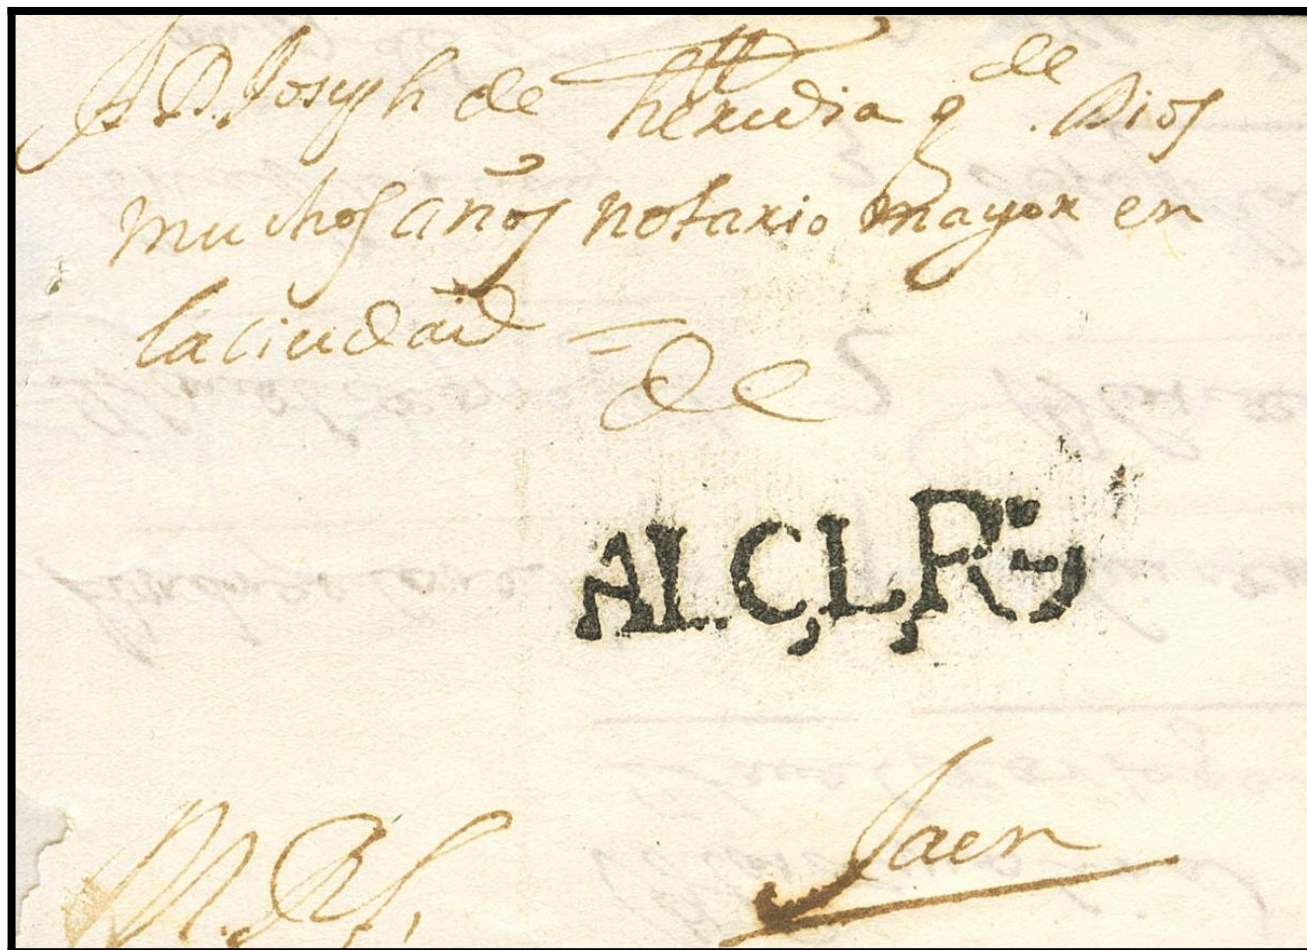 A D. Joseph de heredia g.de Dios
muchos años notario mayor en
la ciudad =
de
AL.C,L,R
Jaen